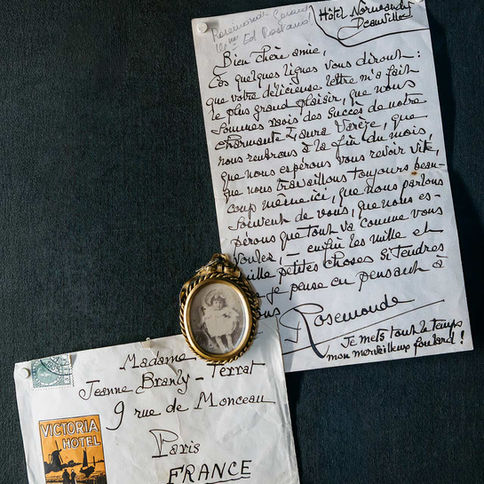 Rosemonde Gérard
Ed Rostand
Hôtel Normandy
Deauville
Bien chère amie,
Ces quelques lignes vous diront :
que votre délicieuse lettre m'a fait
le plus grand plaisir, que nous
sommes ravis des succès de notre
charmante Laura Varèze, que
nous rentrons à la fin du mois,
que nous espérons vous revoir vite,
que nous travaillons toujours beau-
coup même ici, que nous parlons
souvent de vous, que nous es-
pérons que tout va comme vous
voulez, — enfin les mille et
mille petites choses si tendres
je pense en pensant à
vous
Rosemonde
Je mets tout le temps
mon merveilleux foulard !
Madame
Jeanne Branly - Terrat
9 rue de Monceau
Paris
FRANCE
VICTORIA
HOTEL